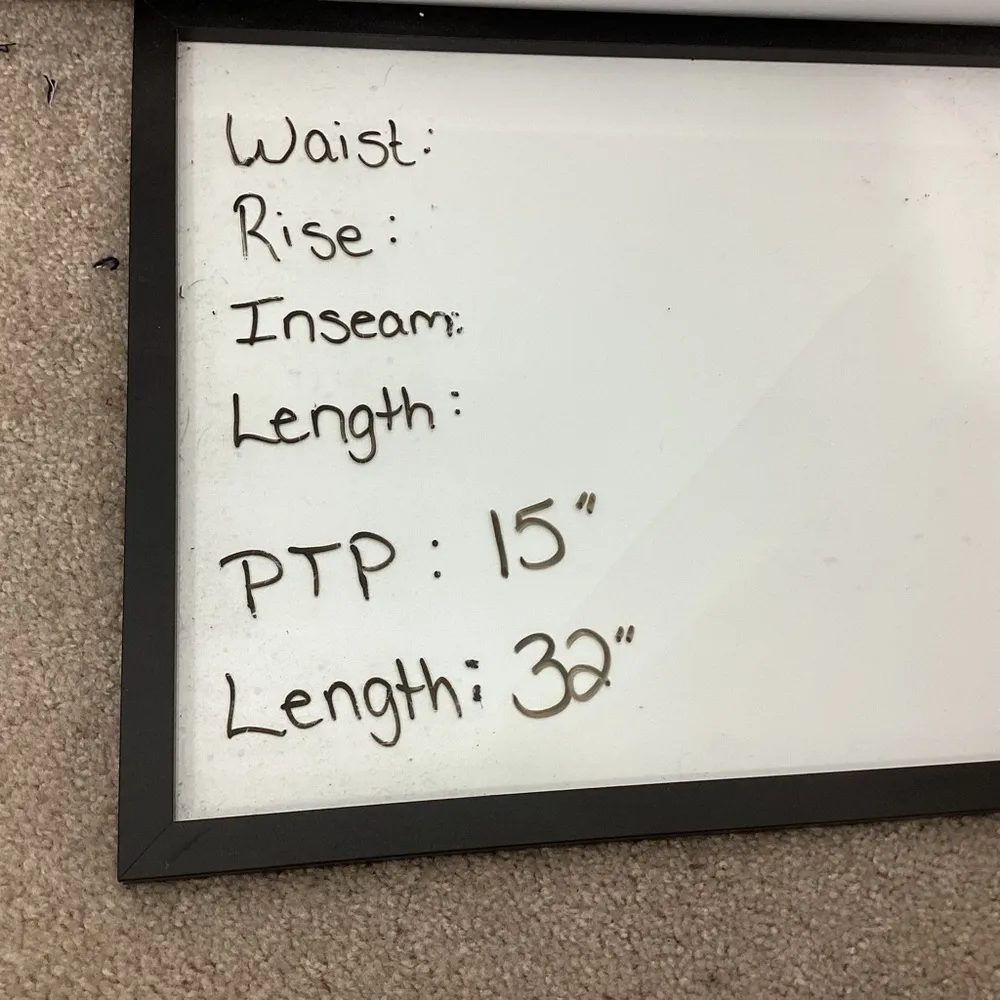 Waist:
Rise:
Inseam:
Length:
PTP: 15"
Length: 32"